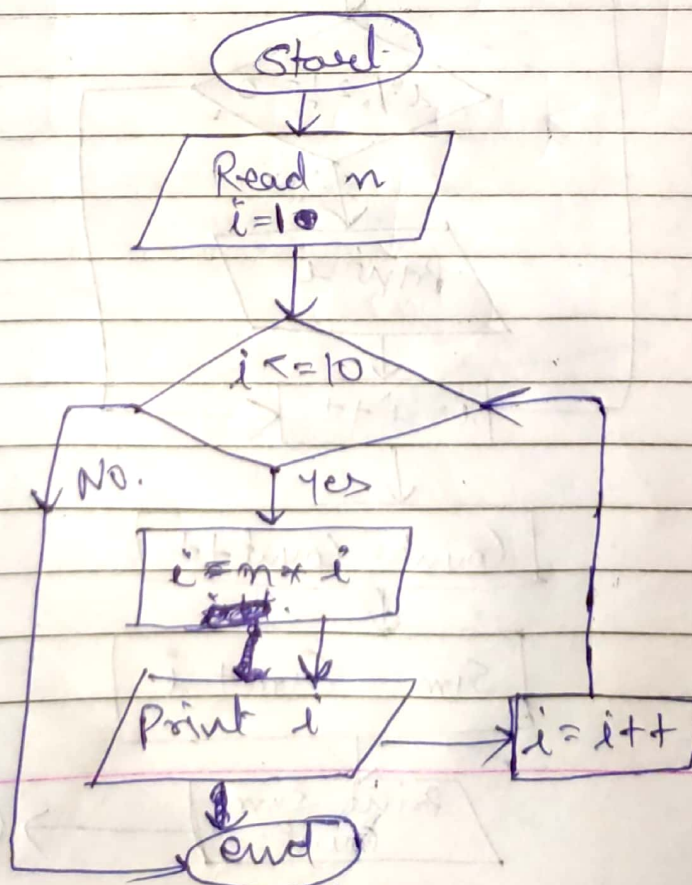 Start
Read n
i=1
i<=10
No.
Yes
i=n* i
Print i
i=i++
end